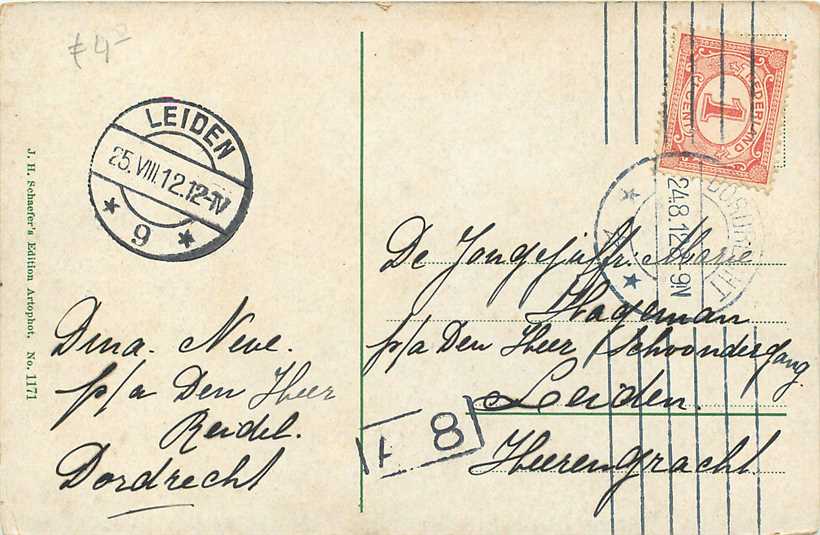 LEIDEN
25.VIII.12.12-IV
9
J. H. Schaefer's Edition Artophot, No. 1171
Dina. Neve.
p/a Den Heer
Reidel.
Dordrecht
NEDERLAND
1
CENT
DORDRECHT
24.8.12 -9N
De Jongejuffr. Marie
Hageman
p/a Den Heer Schoondergang.
Leiden.
Heerengracht.
8